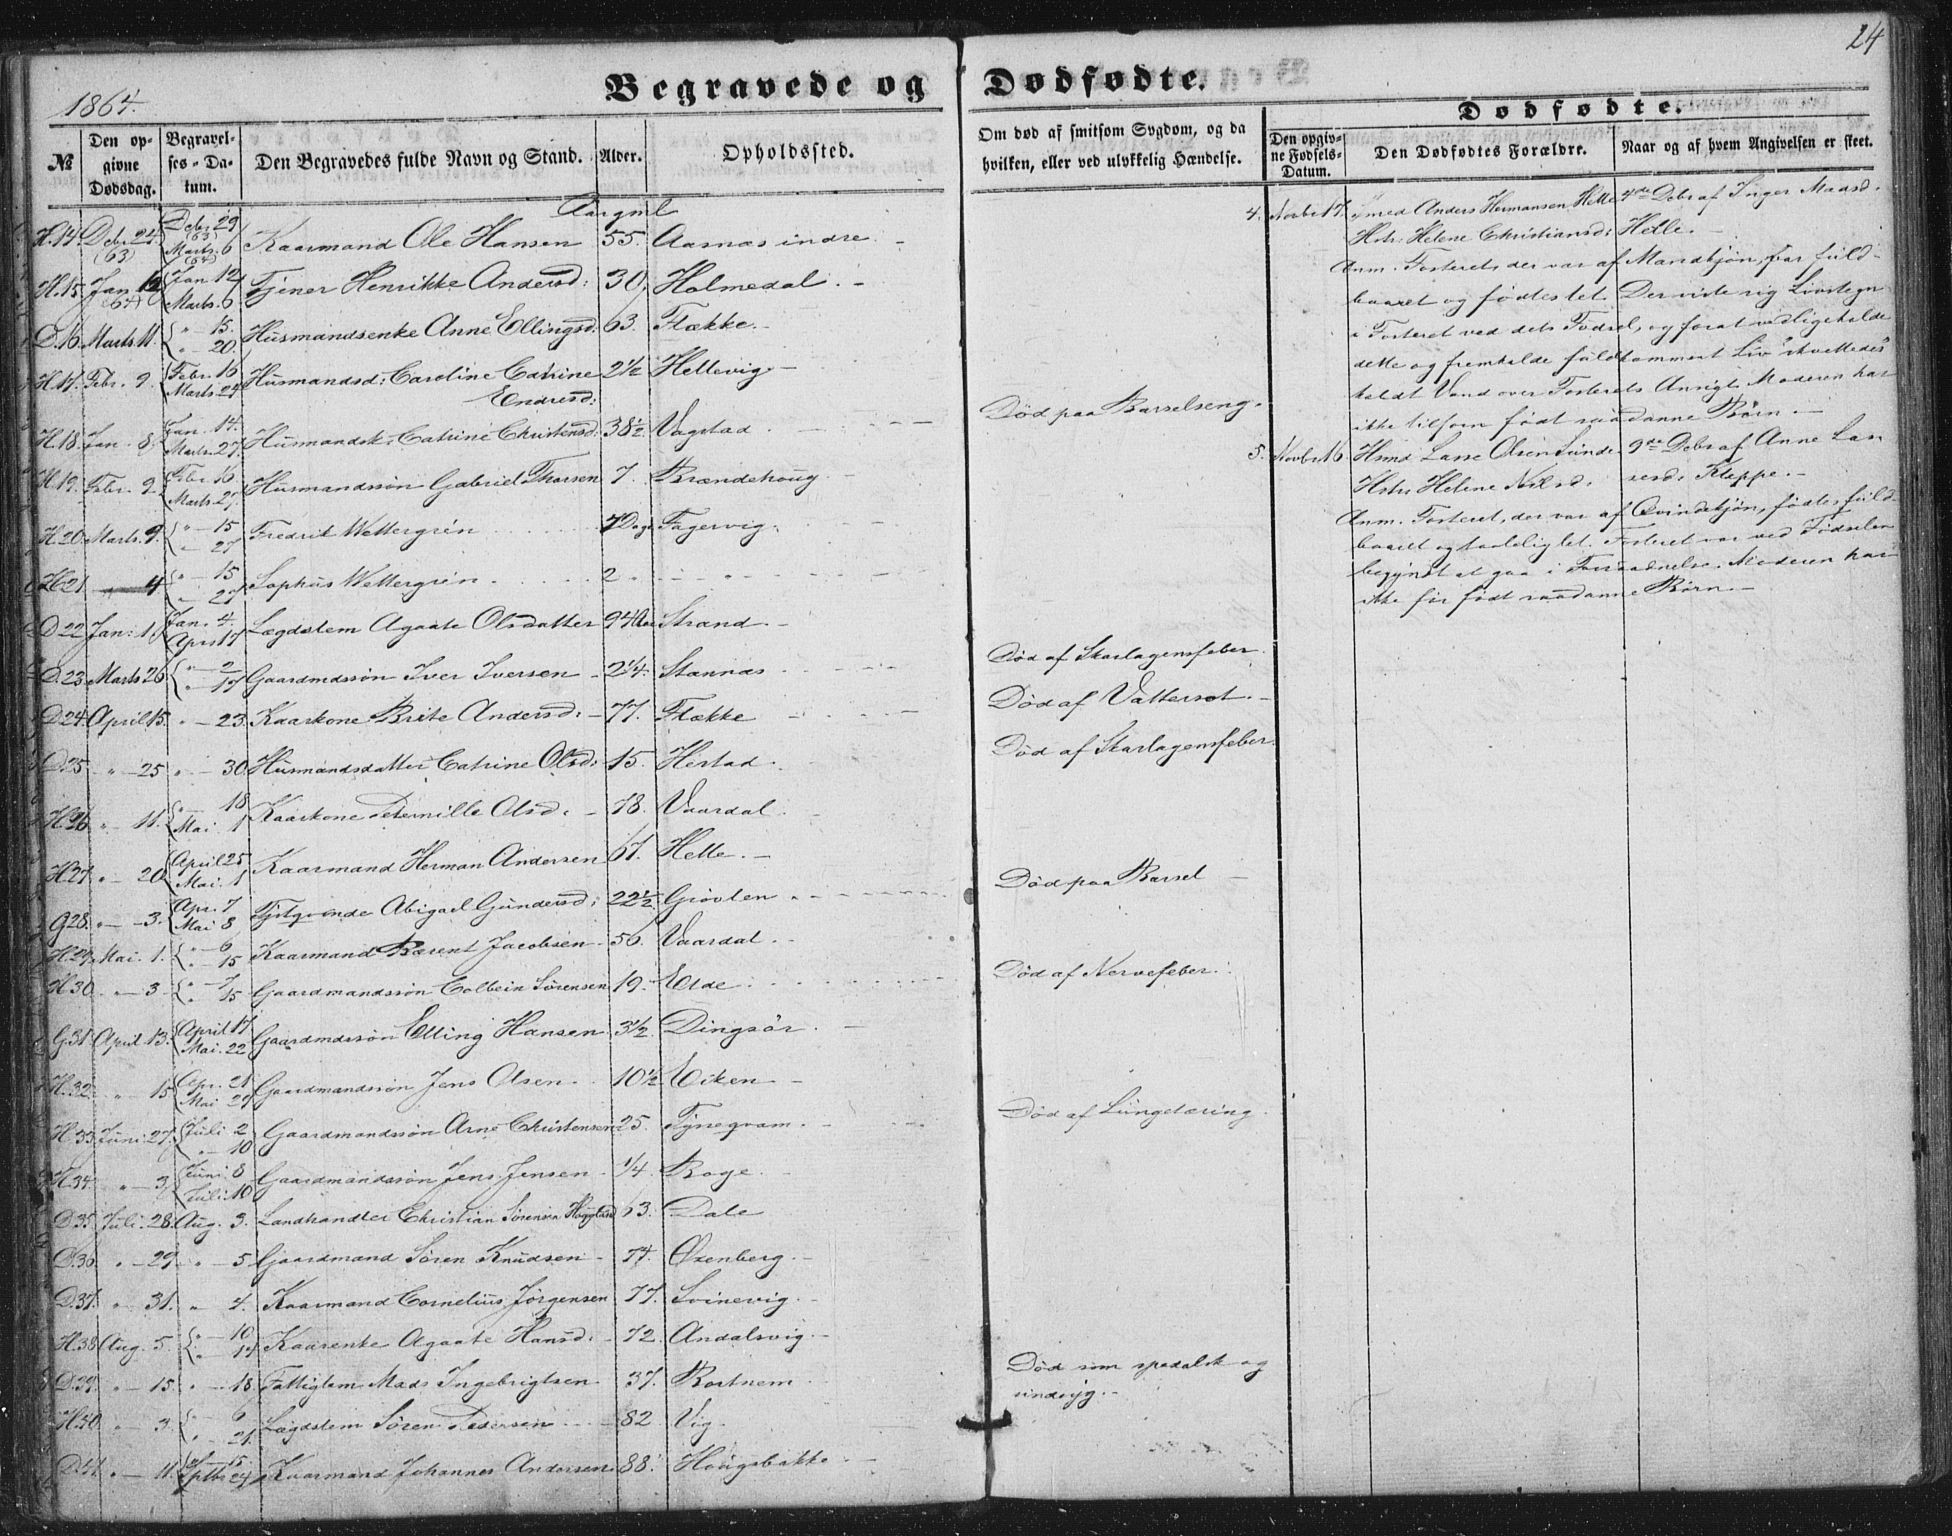 24
Begravede og Dødfødte.
1864.
Dødfødte.
№
Den op-
givne
Dødsdag.
Begravel-
ses-Da-
tum.
Den Begravedes fulde Navn og Stand.
Alder.
Opholdssted.
Om død af smitsom Sygdom, og da
hvilken, eller ved ulykkelig Hændelse.
Den opgiv-
ne Fødsels-
Datum.
Den Dødfødtes Forældre.
Naar og af hvem Angivelsen er skeet.
H.14. Debr 24. (63) Debr 29 (63) Marts. 6 (64) Kaarmand Ole Hansen 55. Aasnæs indre.
H.15 Jan 12 (64) Jan 12 Marts. 6 Tjener Henrikke Andersd: 30, Holmedal.
D.16 Marts. 11. " 15. " 20. Husmandsenke Anne Ellingsd: 63. Flække.
H.17. Febr. 9. Febr. 16 Marts. 27 Husmandsd: Caroline Catrine 2 1/2 Hellevig
Endresd:
H.18. Jan. 8. Jan. 14. Marts. 27. Husmandsk: Catrine Christensd: 38 1/2 Vagstad Død paa Barselseng.
H.19. Febr. 9. Febr. 16 Marts. 27. Husmandssön Gabriel Thorsen 7. Brændehoug
H.20. Marts. 9. " 15 " 27 Fredrik Wettergrén 7 Dage Fagervig.
H.21 " 4 " 15 " 27 Sophus Wettergrén 2 " "
D.22 Jan: 1. Jan. 4. Apr. 17 Lægdslem Agaate Olsdatter 94 Aar Strand.
D.23. Marts 26 " 2 " 17 Gaardmdssön Iver Iversen 2 1/4. Stannæs Død af Skarlagensfeber.
D.24. April 15. " 23. Kaarkone Brite Andersd: 77. Flække Død af Vattersot.
D.25 " 25 " 30. Husmandsdatter Catrine Olsd: 15. Hestad Død af Skarlagensfeber.
H.26 " 11. " 18 Mai 1 Kaarkone Peternille Olsd: 78. Vaardal.
H.27. " 20. April 25 Mai. 1 Kaarmand Herman Andersen 67. Helle.
G.28. " 3. Apr. 7 Mai 8 Abigael Gundersd: 22 1/2. Grövlen Død paa Barsel
H.29. Mai. 1. " 6 " 15 Kaarmand Barent Jacobsen 56. Vaardal.
H.30 " 3. " 7 " 15 Gaardmandssön Colbein Sørensen 19. Elde. Død af Nervefeber.
G.31. April 13. April 17 Mai. 22 Gaardmdssön Elling Hansen 3 1/2. Dingsör.
H.32. " 15 Apr. 21 Mai 29 Gaardmandssön Jens Olsen. 10 1/2. Eiken
H.33 Juni. 27. Juli 2 " 10 Gaardmandssön Arne Christensen 25. Tyneqvam. Død af Lungetæring.
H.34. " 3. Juni. 8 Juli. 10 Gaardmandssön Jens Jensen 1/4. Boge.
D.35 Juli. 28. Aug. 3. Landhandler Christian Sörensen 63. Dale
D.36. " 29. " 5. Gaardmand Sören Knudsen 74. Oxenberg.
D.37. " 31. " 4. Kaarmand Cornelius Jörgensen 77. Svinevig.
H.38 Aug. 5. " 10 " 14 Kaarenke Agaate Hansd: 72. Andalsvig.
D.39. " 15. " 18. Fattiglem Mads Ingebrigtsen. 37. Rostnem Død som spedalsk og
sindsyg.
H.40 " 3. " 6 " 21. Lægdslem Sören Pedersen 82 Vig.
D.41. " 11. " 15 Septbr 24 Kaarmand Johannes Andersen. 88. Hougsbakke
4. Novbr. 17. Smed Anders Hermansen Helle 4de Debr af Inger Maasd.
Hstr. Helene Christiansd: Helle.
Anm. Fosteret, der var af Mandkjön, var fuld-
baaret og födtes let. Der viste sig Livstegn
i Fosteret ved dets Födsel, og forat vedligeholde
dette og fremkalde fuldkomment Liv "skvættedes"
koldt Vand over Fosterets Ansigt. Moderen har
ikke tilforn födt saadanne Børn.
5. Novbr. 16. Hsmd Lasse Olsen Sunde. 9de Debr af Anne Las
Hstr. Helene Nilsd: sesd: Kleppe.
Anm. Fosteret, der var af Qvindekjön, födtes fuld-
baaret og taalelig let. Fosteret var ved Födselen
begyndt at gaa i Forraadnelse. Moderen har
ikke för födt saadanne Børn.